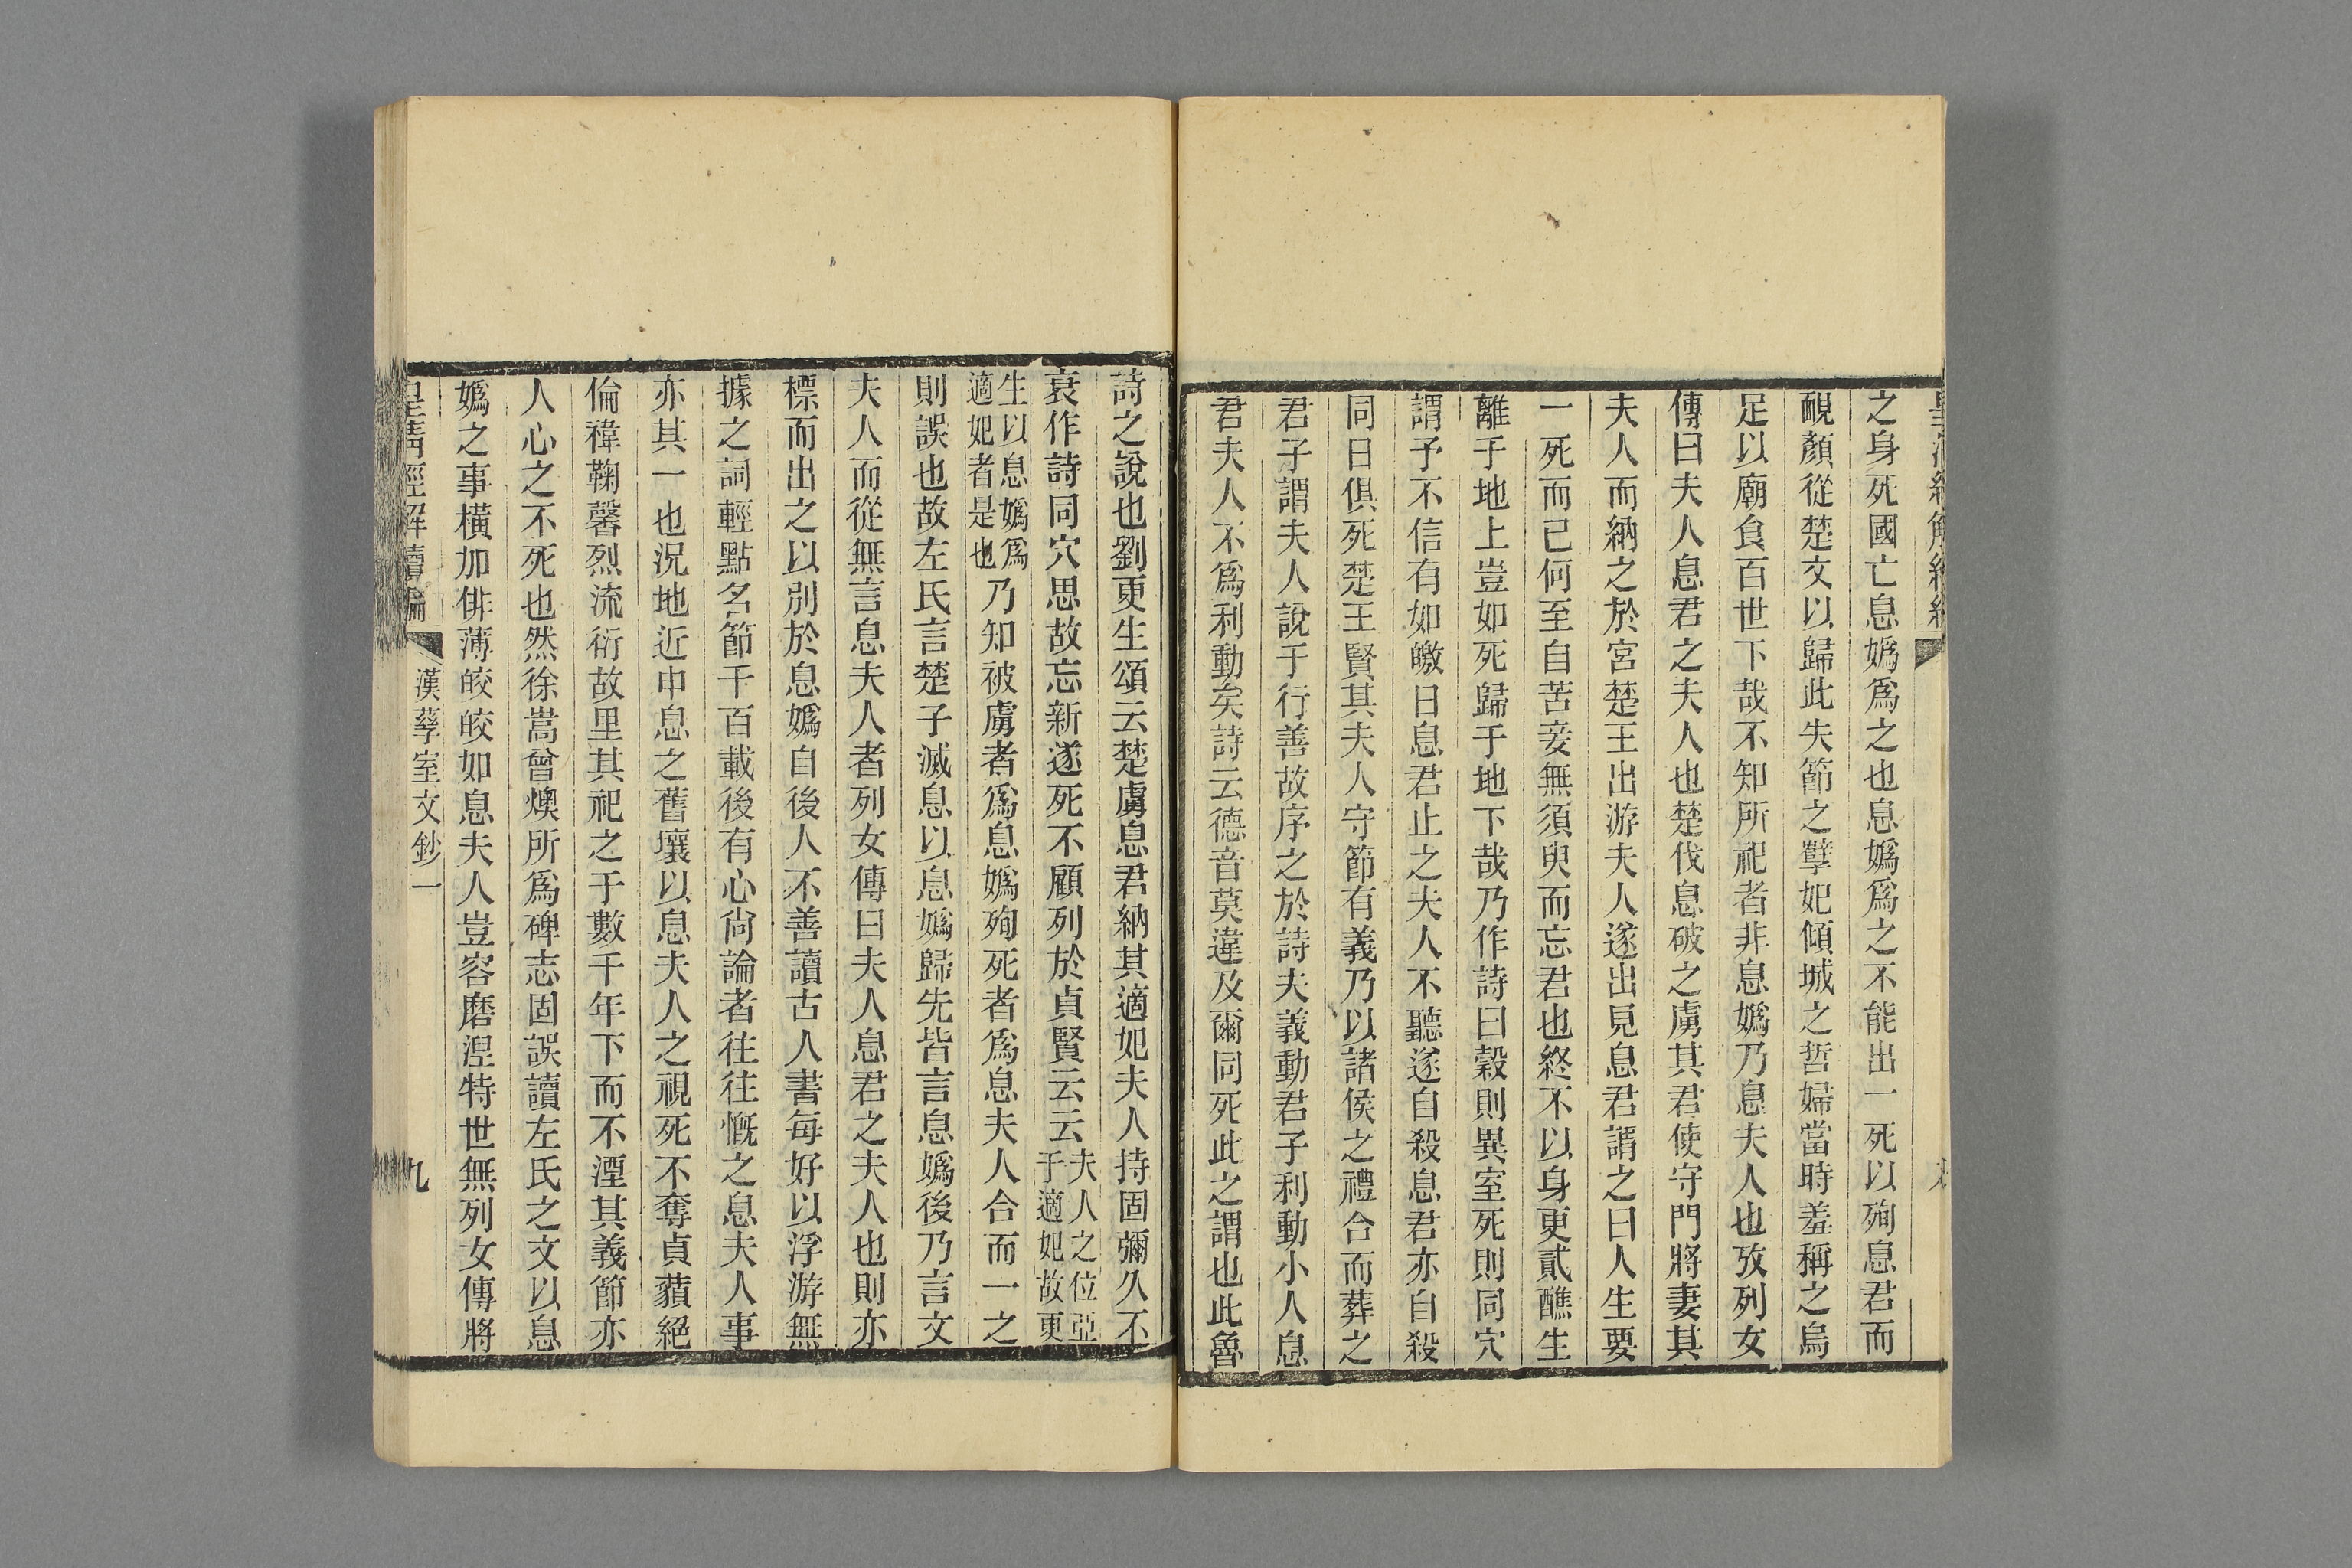 之身死國亡息嬀爲之也息嬀爲之不能出一死以殉息君而
靦顏從楚文以歸此失節之孽妃傾城之哲婦當時羞稱之烏
足以廟食百世下哉不知所祀者非息嬀乃息夫人也攷列女
傳曰夫人息君之夫人也楚伐息破之虜其君使守門將妻其
夫人而納之於宮楚王出游夫人遂出見息君謂之曰人生要
一死而已何至自苦妾無須臾而忘君也終不以身更貳醮生
離于地上豈如死歸于地下哉乃作詩曰穀則異室死則同穴
謂予不信有如皦日息君止之夫人不聽遂自殺息君亦自殺
同日俱死楚王賢其夫人守節有義乃以諸侯之禮合而葬之
君子謂夫人說于行善故序之於詩夫義動君子利動小人息
君夫人不爲利動矣詩云德音莫違及爾同死此之謂也此魯
詩之說也劉更生頌云楚虜息君納其適妃夫人持固彌久不
衰作詩同穴思故忘新遂死不顧列於貞賢云云夫人之位亞于適妃故更
生以息嬀爲適妃者是也乃知被虜者爲息嬀殉死者爲息夫人合而一之
則誤也故左氏言楚子滅息以息嬀歸先皆言息嬀後乃言文
夫人而從無言息夫人者列女傳曰夫人息君之夫人也則亦
標而出之以別於息嬀自後人不善讀古人書每好以浮游無
據之詞輕點名節千百載後有心尙論者往往慨之息夫人事
亦其一也況地近申息之舊壤以息夫人之視死不奪貞蘋絕
倫禕鞠馨烈流衍故里其祀之于數千年下而不湮其義節亦
人心之不死也然徐嵩曾燠所爲碑志固誤讀左氏之文以息
嬀之事橫加俳薄皎皎如息夫人豈容磨涅特世無列女傳將
皇淸經解續編 漢孳室文鈔一 九